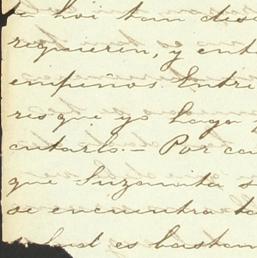 hoi tan dese
requieren, y ent
empeños. Entre
ris que yo haga
cutarlo.- Por ca
que Suzanita s
se encuentra ta
lud es bastan